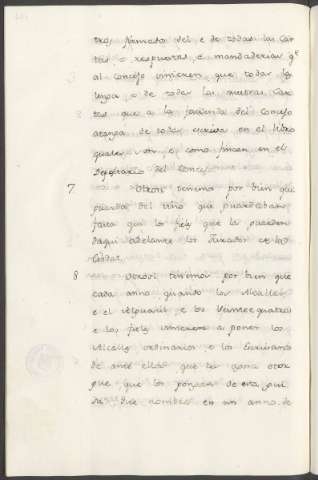 tros, firmados del e de todas las Car
tas, o respuestas, e mandaderias q.e
al concejo vinieren, que todas las
traya, o de todas las nuestras Car
tas que a la facienda del Concejo
atanga, de todas escriva en el libro
qual es son, e como fincan en el
Depositario del Concejo.
7 Otrosi tenemos por bien que
guarda del vino que guardaban
fasta qui los fieles que la guarden
daqui adelante los Jurados de la
Cibdat.
8 Otrosi tenemos por bien que
cada anno quando los Alcalles
e el Alguacil, e los Veintequatro
e los fieles vinieren a poner los
Alcalles ordinarios, e los Escrivanos
de ante ellos que
que que los pongan de esta gui
sa diez nombres en un anno, de